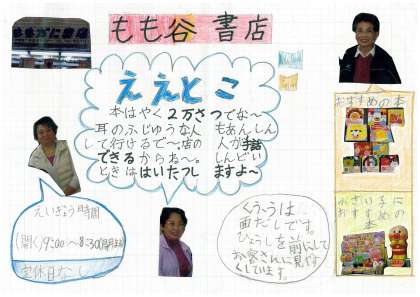 もも谷 書店
ええとこ
本はやく2万さつでな〜
耳のふじゆうな人もあんしん
して行けるで〜。店の人が手話
できるからね〜。しんどい
ときははいたつしますよ〜
おすすめの本
えいぎょう時間
(開く)9:00〜8:30(閉まる)
定休日なし
くふうは
面だしです。
ひょうしを前にして
お客さんに見やす
くしています。
小さい子に
おすすめ
本